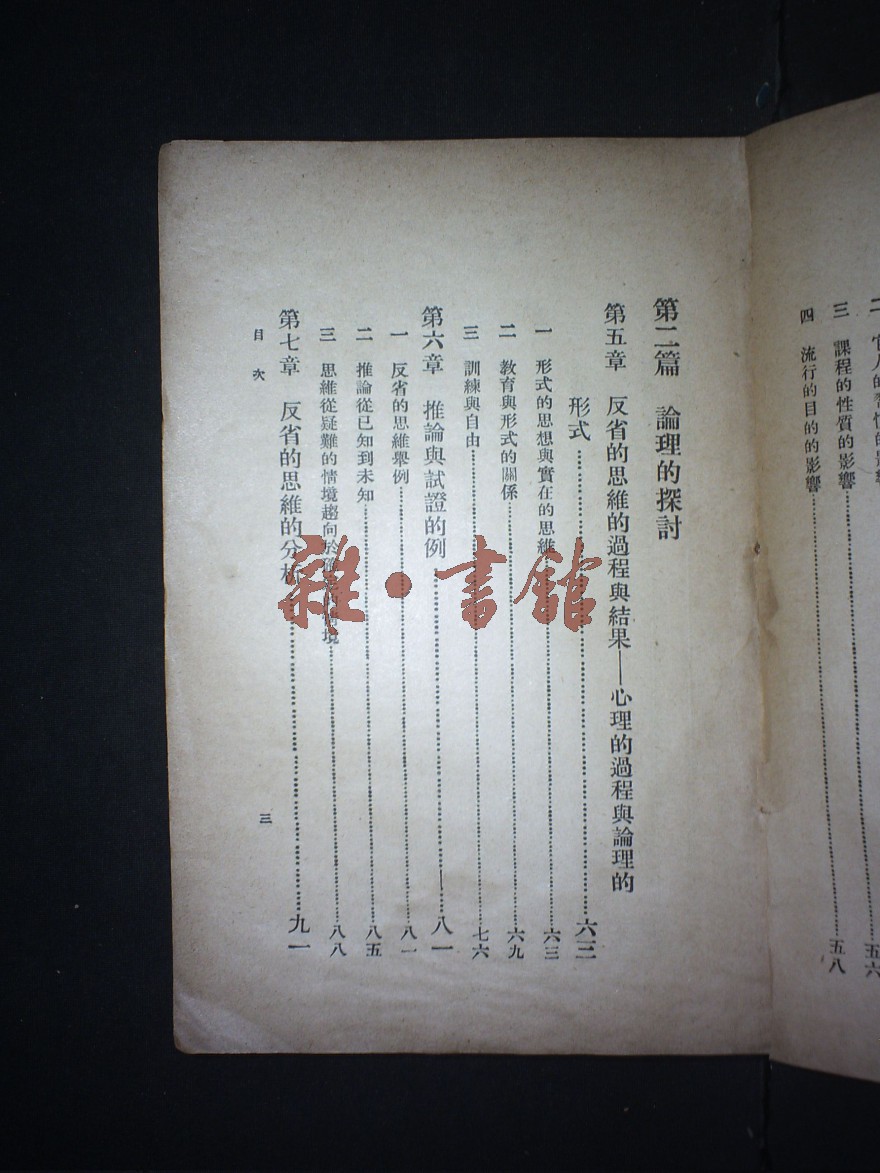 三 課程的性質的影響……五六
四 流行的目的的影響……五八
第二篇 論理的探討
第五章 反省的思維的過程與結果——心理的過程與論理的
形式……六三
一 形式的思想與實在的思維……六三
二 教育與形式的關係……六九
三 訓練與自由……七六
第六章 推論與試證的例……八一
一 反省的思維舉例……八一
二 推論從已知到未知……八五
三 思維從疑難的情境趨向於確定的情境……八八
第七章 反省的思維的分析……九一
目次
三
雜·書館